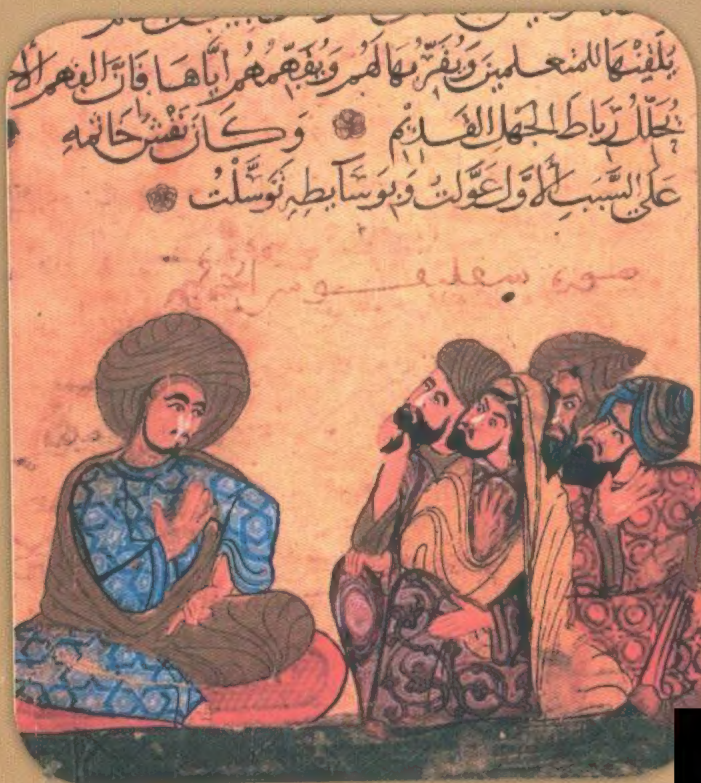 يلقنها للمتعلمين ويقربها لهم ويفهمهم اياها فان الفهم
يحلل رباط الجهل القديم وكان نقش خاتمه
على السبب الاول عولت وبوسايطه توسلت
صورة